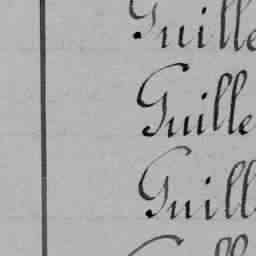 Guille
Guille
Guill